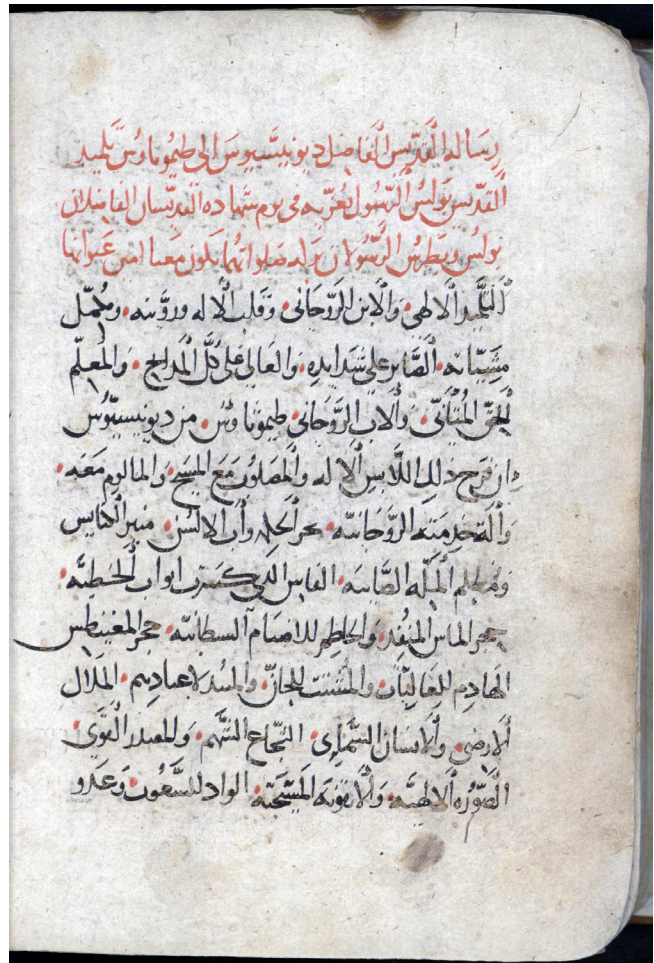 رساله القديس الفاضل ديونيسيوس الى طيموتاوس تلميد
القديس بولس الرسول تعزيه في يوم شهاده القديسان الفاضلان
بولس وبطرس الرسولان بركه صلواتهما تكون معنا امين عزانها
التلميد الالاهي والابن الروحاني وقلب الاله ورؤيته ومكمل
مشيياته الصابر على شدايده والعالي على كل المدايح والمعلم
الحق المتاني والاب الروحاني طيموتاوس من ديونيسيوس
ان فرح ذلك اللابس الاله والمصلوب مع المسيح والمالوم معه
والة خدمته الروحانيه بحر الحكمه واب الالسن منير الكنايس
ومعلم المله الصايبه الفاس الدي كسرت ابواب الخطيه
حجر الماس المنفد والحاطم للاصنام الشيطانيه حجر المغنيطس
الهادم للغاليات والمشتت للجان والمبدد لاعيادهم الملاك
الارضي والانسان السماوي الشجاع الشهم والمصدر القوي
الصوره الالهيه والايقونه المسيحيه الواد للشعوب وعدو